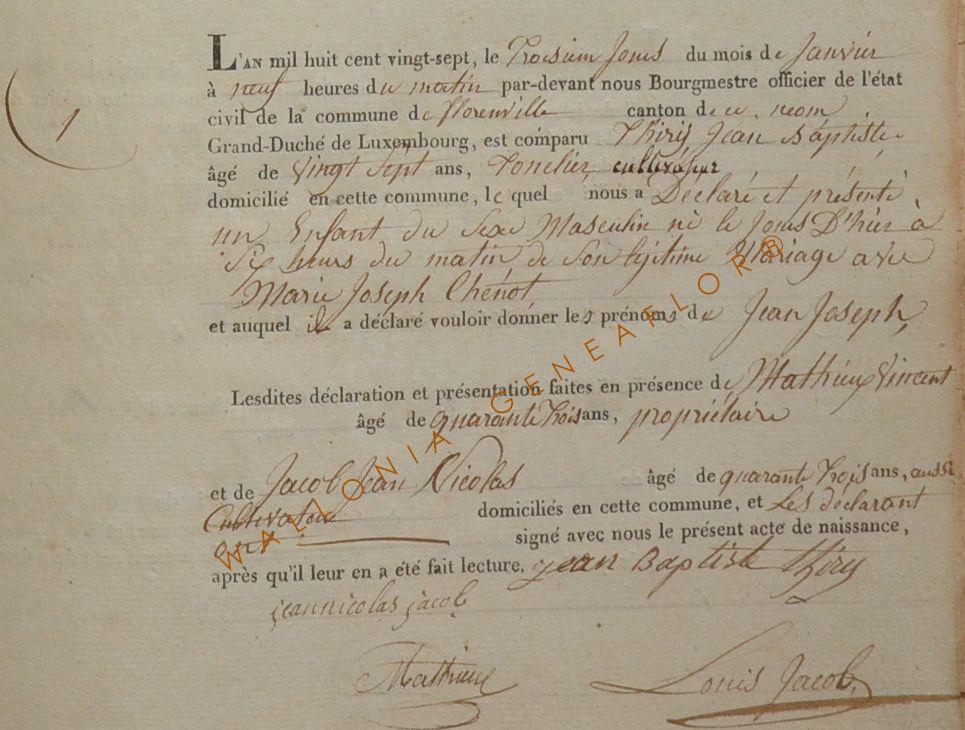 L'AN mil huit cent vingt-sept, le Troisiem Jours du mois de Janvier
à neuf heures du matin par-devant nous Bourgmestre officier de l'état
1
civil de la commune de florenville canton de ce nom
Grand-Duché de Luxembourg, est comparu Thiry Jean Baptiste
âgé de Vingt Sept ans, Tonelier cultivateur
domicilié en cette commune, lequel nous a Déclaré et présenté
un Enfant du Sexe Masculin né le Jours D'hier à
Six heurs du matin de Son légitime Mariage avec
Marie Joseph Chénot
et auquel il a déclaré vouloir donner les prénoms de Jean Joseph,
Lesdites déclaration et présentation faites en présence de Mathieu Vincent
âgé de quarante trois ans, propriétaire
et de Jacob Jean Nicolas âgé de quarante trois ans, aussi
Cultivateur domiciliés en cette commune, et Les déclarant
ont signé avec nous le présent acte de naissance,
après qu'il leur en a été fait lecture. jean Baptiste thiry
jeannicolas jacob
Mathieu Louis Jacob
WALLONIA GENEAFLOR®